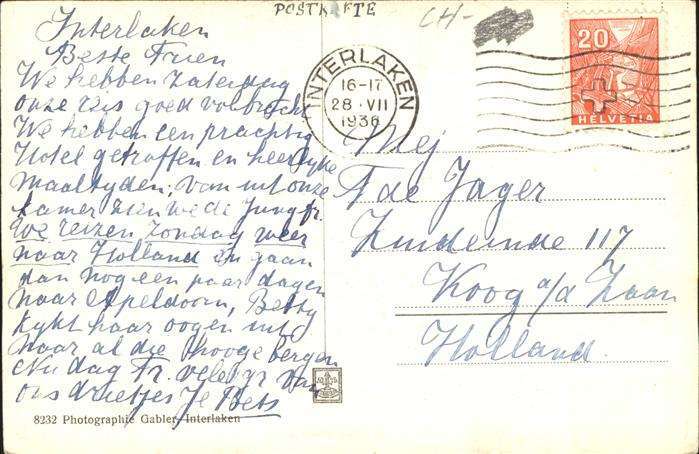 POSTKARTE
CH-
Interlaken
Beste Truen
We hebben Zaterdag
onze reis goed volbracht
We hebben een prachtig
Hotel getroffen en heerlyke
maaltyden, van uit onze
kamer zien we de Jungfr.
We reizen Zondag weer
naar Holland en gaan
dan nog een paar dagen
naar Apeldoorn, Betsy
kykt haar oogen uit
naar al die hooge bergen
Nu dag Tr. veel gr van
ons drietjes Je Bets
8232 Photographie Gabler, Interlaken
INTERLAKEN
16-17
28 · VII
1936
20
HELVETIA
Mej
T de Jager
Zuideinde 117
Koog a/d Zaan
Holland.